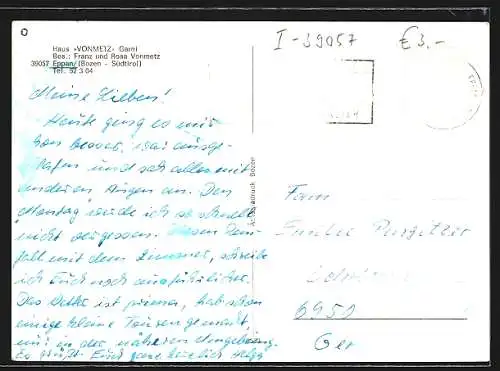 I-39057 € 3.-
Haus »VONMETZ« Garni
Bes.: Franz und Rosa Vonmetz
39057 Eppan/(Bozen - Südtirol)
Tel. 52 3 04
Meine Lieben!
Heute ging es mir
schon besser, war ausge-
schlafen und sah alles mit
anderen Augen an. Den
"Montag" werde ich so schnell
nicht vergessen. Diesen
fall mit dem Zimmer, schreibe
ich Euch noch ausführlicher.
Das Wetter ist prima, hab schon
einige kleine Touren gemacht,
nur in der näheren Umgebung.
Es grüßt Euch ganz herzlich Helga
Bozen
Fam
6950
Ger